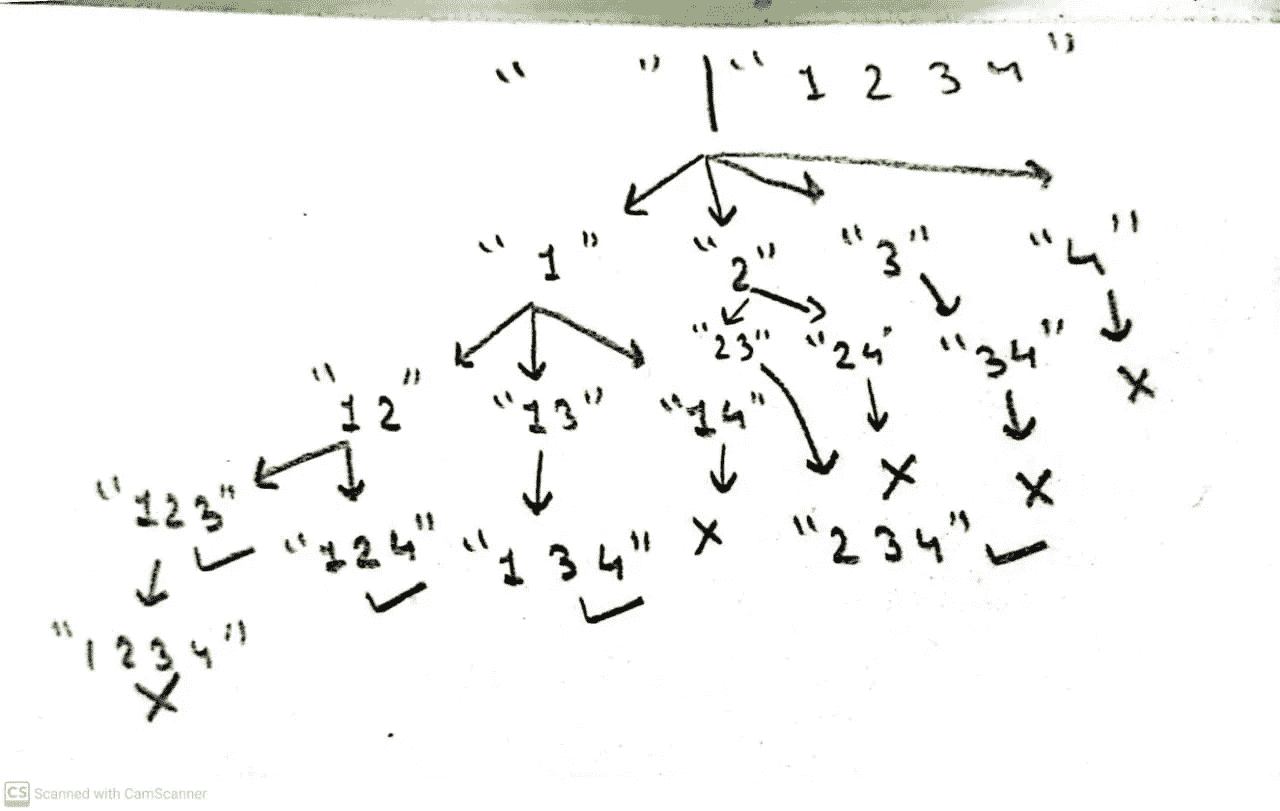 " " | " 1 2 3 4 "
" 1 " " 2 " " 3 " " 4 "
" 23 " " 24 " " 34 " X
" 1 2 " " 13 " " 14 "
X X
" 123 " " 124 " " 1 3 4 " X " 2 3 4 "
" 1 2 3 4 "
X
CS Scanned with CamScanner